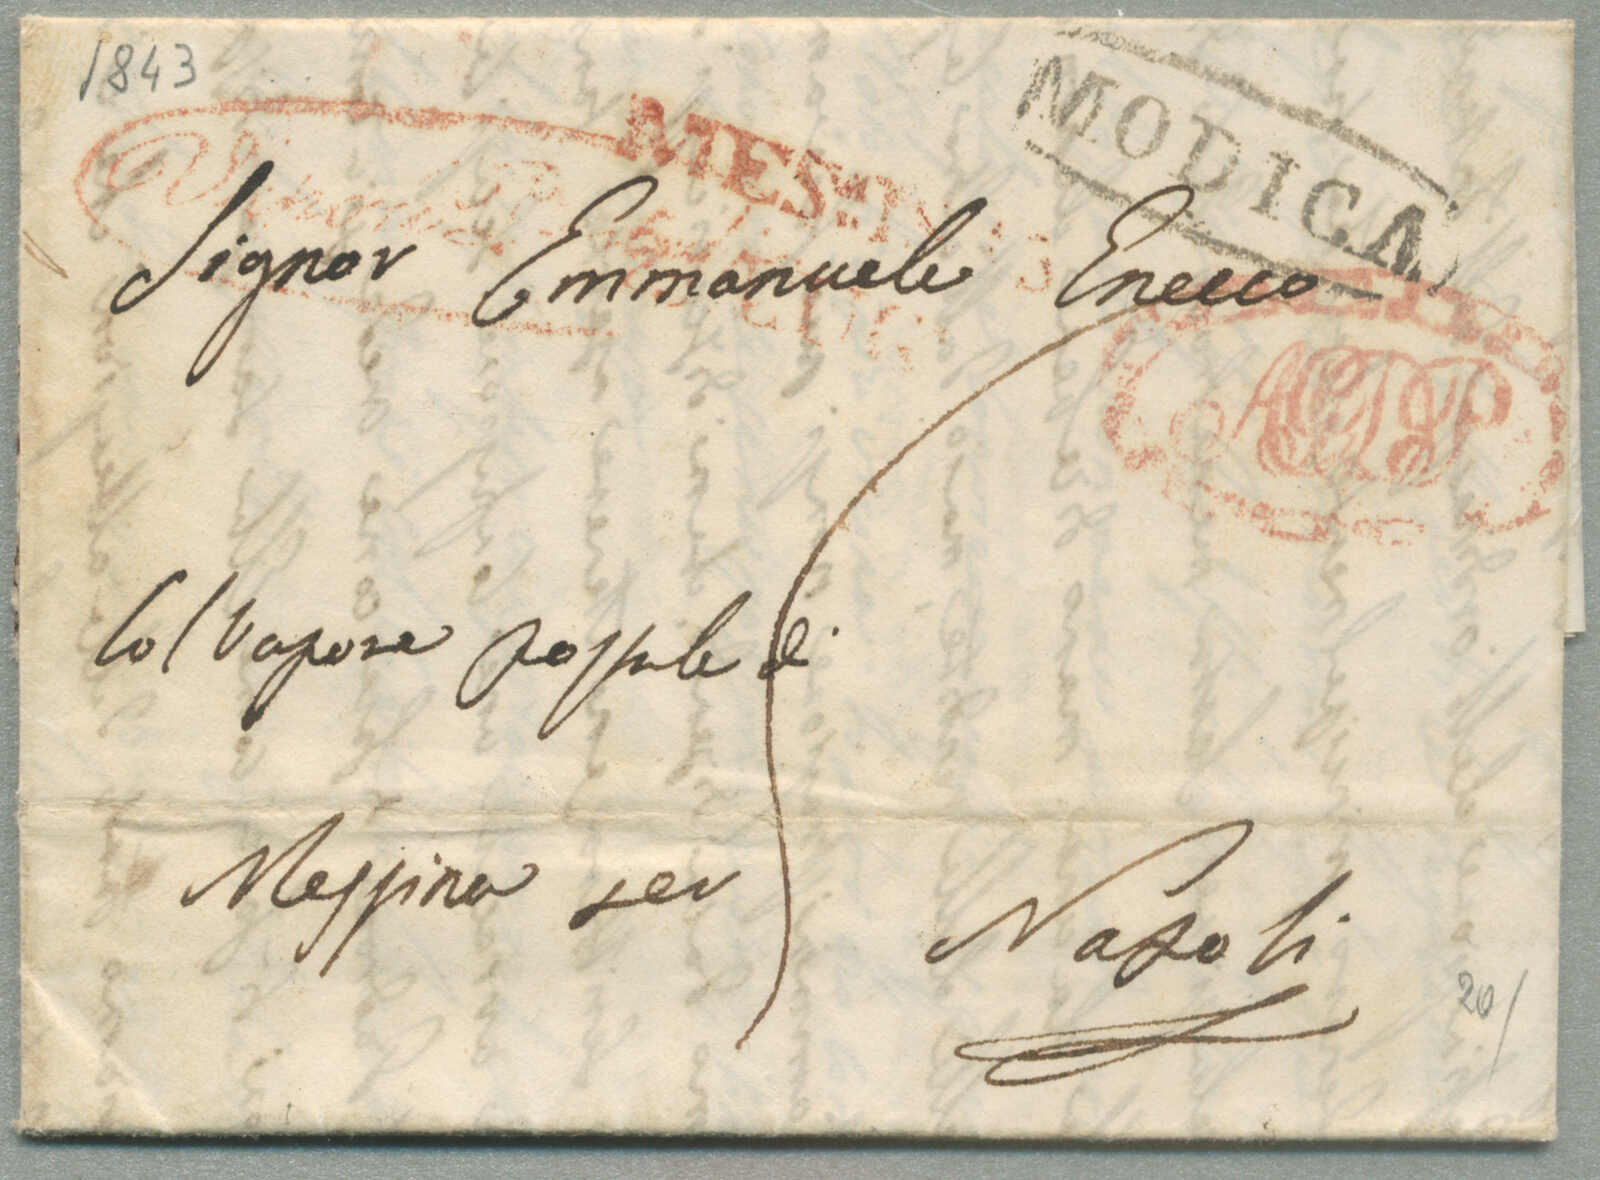 1843
MODICA
MESSINA
Signor Emmanuele Enecco
AGDP
Col Vapore postale di
Messina per
Napoli
20/